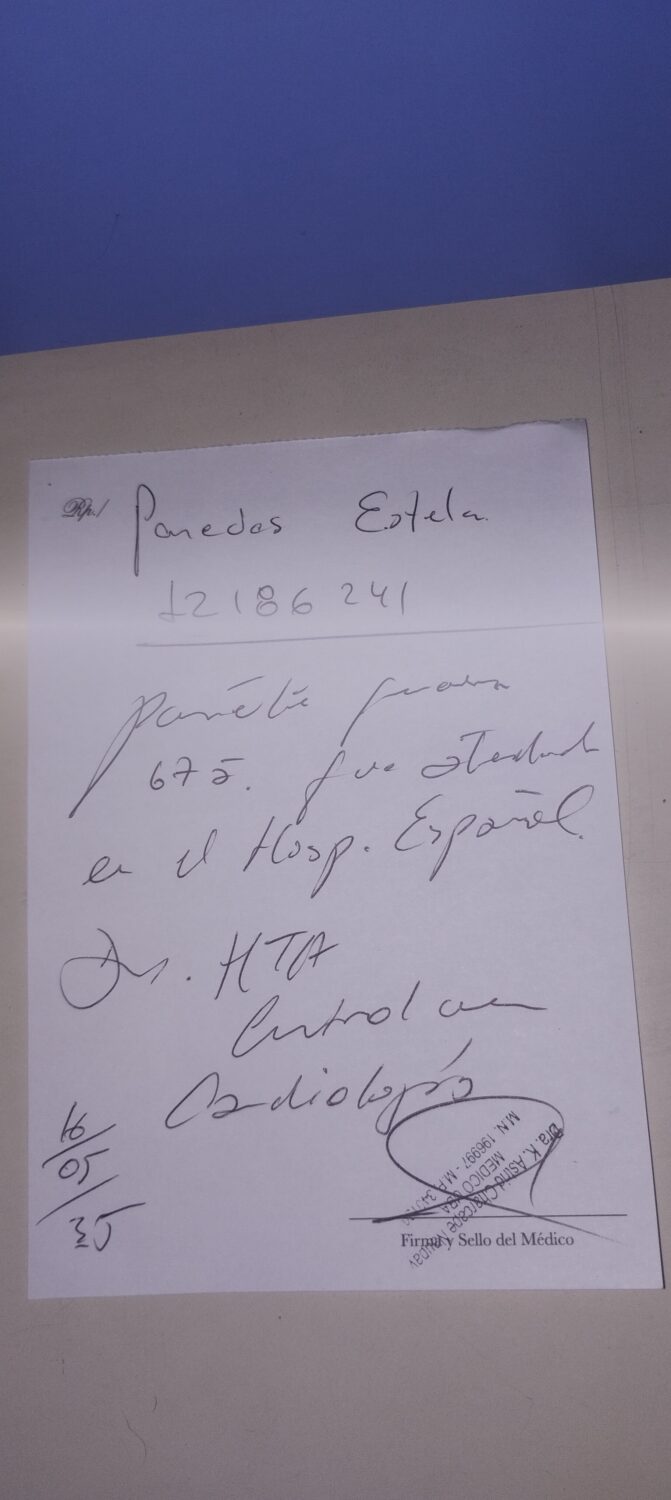 Rp./ Paredes Estela
12186241
Paciente
67a. fue atendida
en el Hosp. Español.
Dx. HTA
Control con
Cardiología
16/05/25
Dra. K. Astrid
M.N. 196997 - M.P.
MEDICO UBA
Firma y Sello del Médico